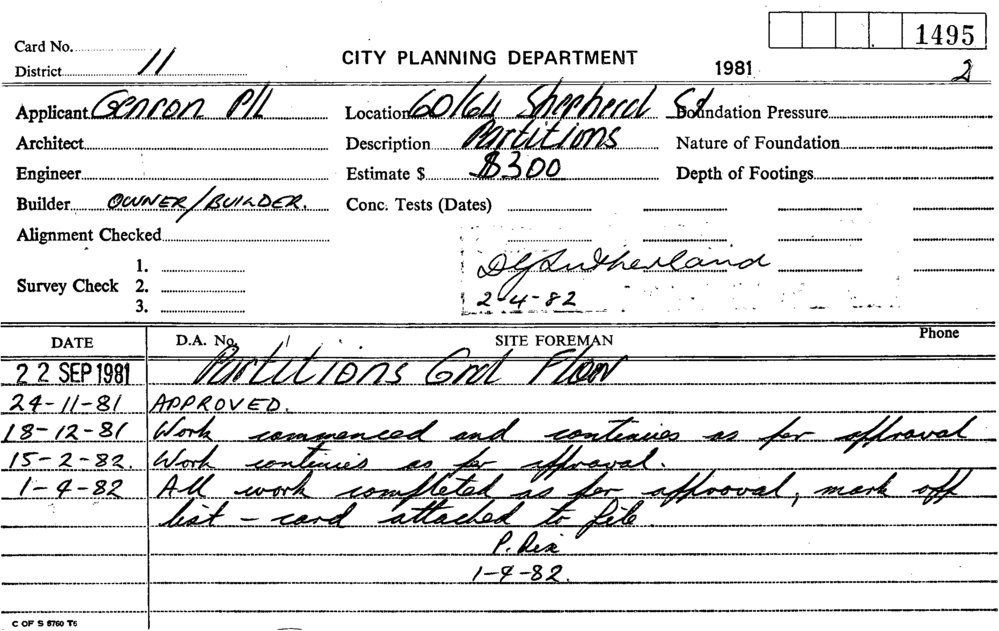 1495
Card No.
District 11
CITY PLANNING DEPARTMENT
1981 2
Applicant Genron P/L Location 60/64 Shepherd St Foundation Pressure
Architect Description Partitions Nature of Foundation
Engineer Estimate $ $300 Depth of Footings
Builder OWNER/BUILDER. Conc. Tests (Dates)
Alignment Checked
1.
Survey Check 2.
3.
DGSutherland
2-4-82
DATE D.A. No. SITE FOREMAN Phone
22 SEP 1981 Partitions Grd Floor
24-11-81 APPROVED.
18-12-81 Work commenced and continues as per approval
15-2-82. Work continues as per approval.
1-4-82 All work completed as per approval, mark off
list - card attached to file.
P. Rix
1-4-82.
C OF S 6760 T6